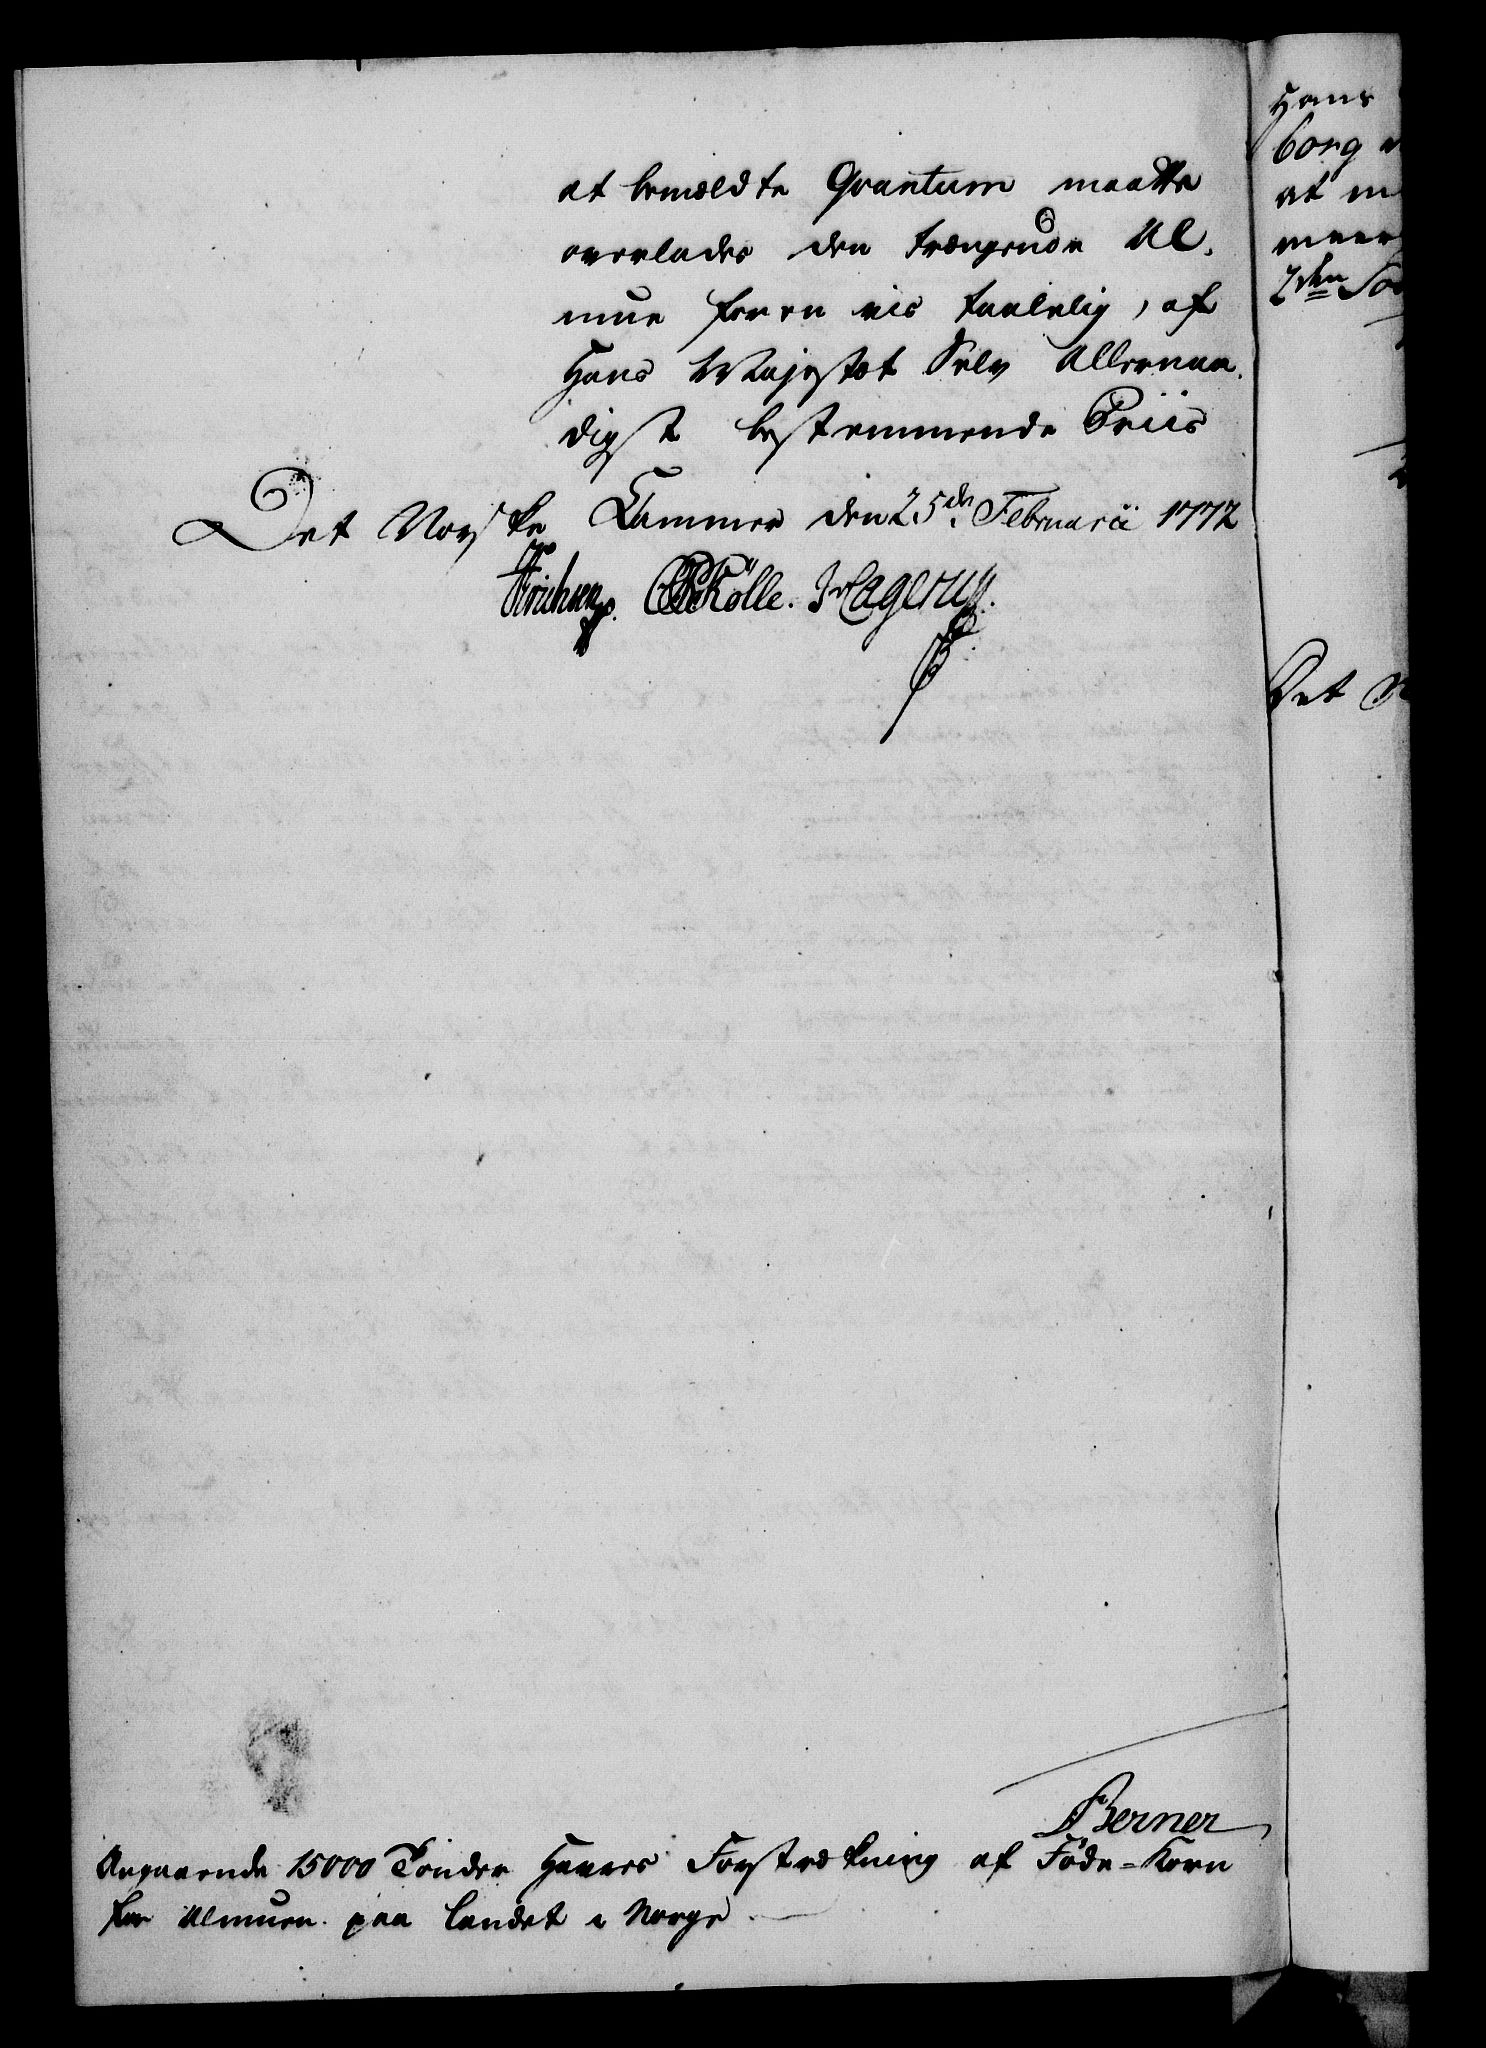 at bemældte Qvantum maatte
overlades den trængende Al-
mue for en vis taalelig, af
Hans Majestæt Selv Allernaa-
digst bestemmende Priis
Det Norske Kammer den 25de Februarii 1772
Erichsen. Kölle. Hagerup.
Berner
Angaaende 15000 Tönder Havres Forstrækning af Föde-Korn
for Almuen paa landet i Norge
Hans
borg
at
2den
Det